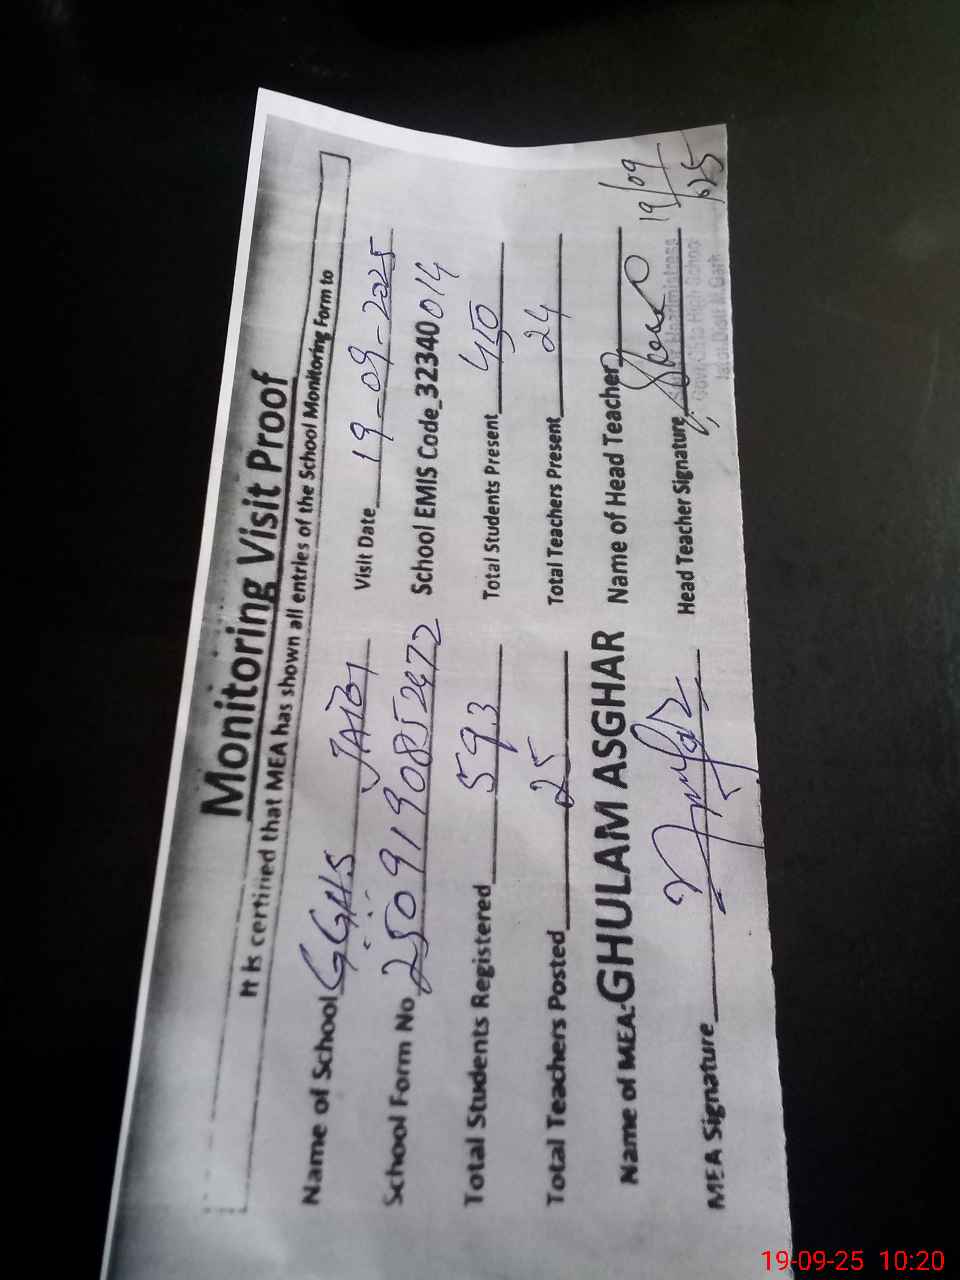 Monitoring Visit Proof
It is certified that MEA has shown all entries of the School Monitoring Form to
Name of School GGHS JATOI Visit Date 19-09-2025
School Form No 2509190852472 School EMIS Code 32340014
Total Students Registered 593 Total Students Present 450
Total Teachers Posted 25 Total Teachers Present 24
Name of MEA:GHULAM ASGHAR Name of Head Teacher
MEA Signature Head Teacher Signature 19/09
Govt. Girls High School
19-09-25 10:20